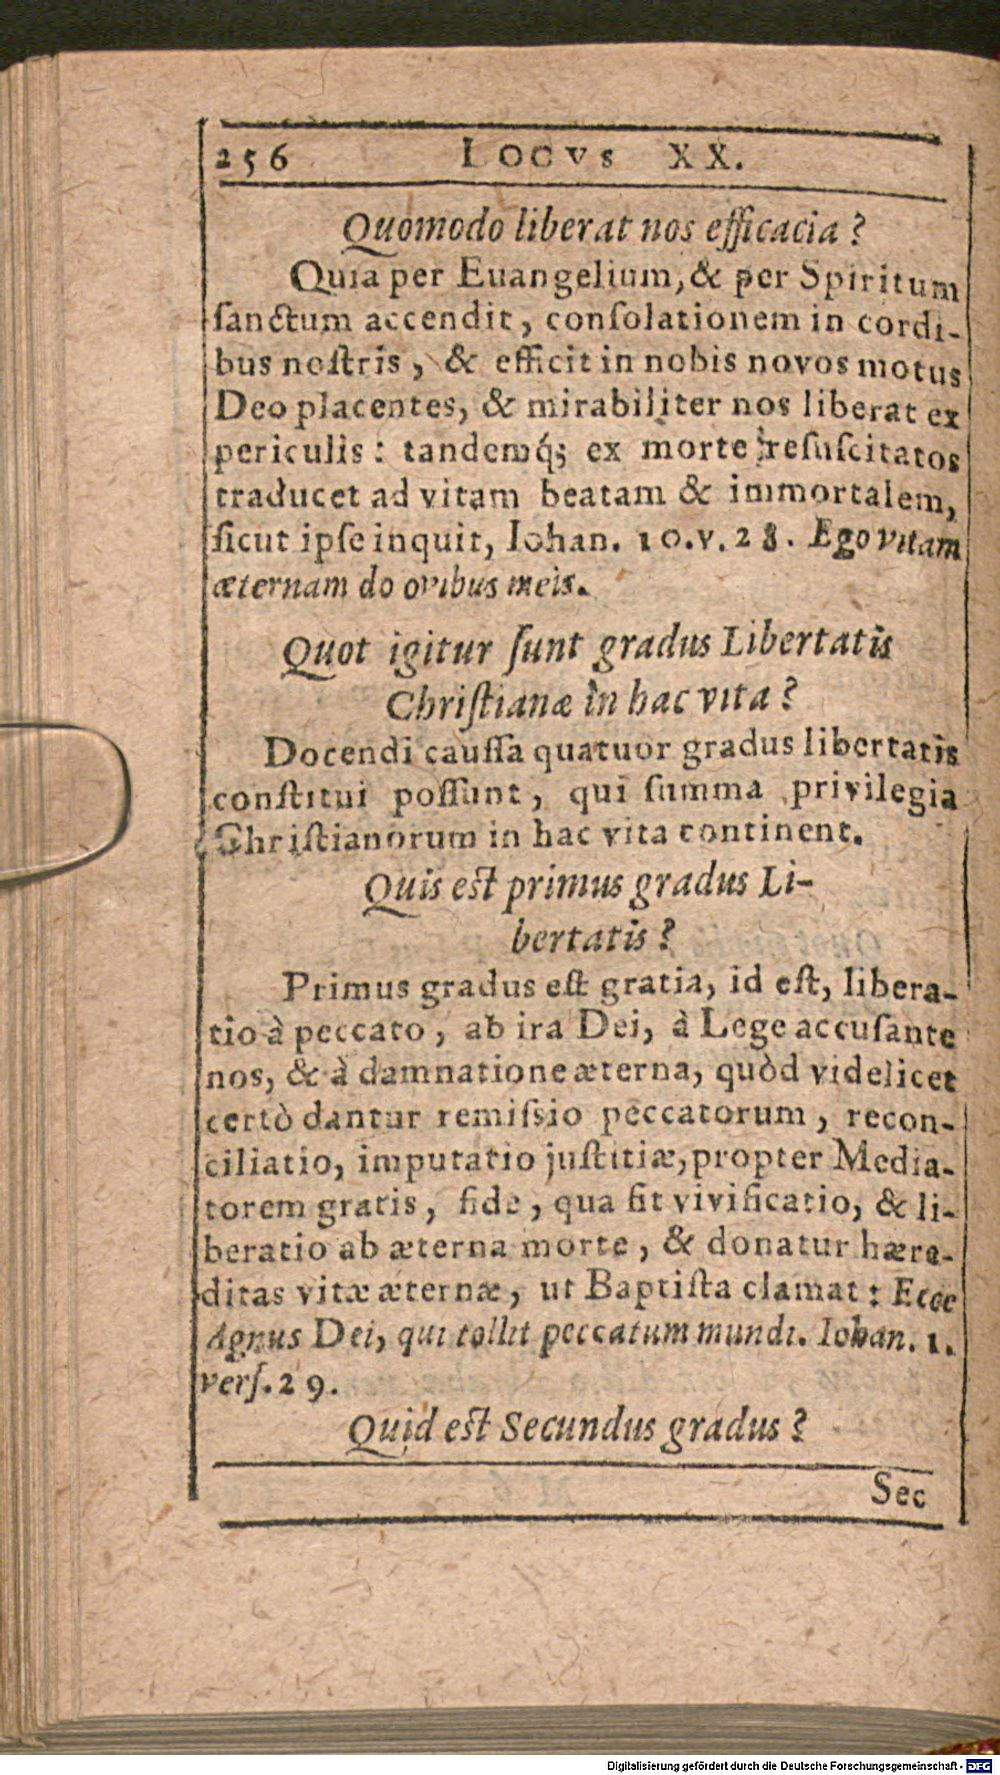 256 LOCVS XX.
Quomodo liberat nos efficacia?
Quia per Euangelium, & per Spiritum
ſanctum accendit, conſolationem in cordi-
bus noſtris, & efficit in nobis novos motus
Deo placentes, & mirabiliter nos liberat ex
periculis: tandemq́; ex morte reſuſcitatos
traducet ad vitam beatam & immortalem,
ſicut ipſe inquit, Iohan. 10. v. 28. Ego vitam
æternam do ovibus meis.
Quot igitur ſunt gradus Libertatis
Chriſtianæ in hac vita?
Docendi cauſſa quatuor gradus libertatis
conſtitui poſſunt, qui ſumma privilegia
Chriſtianorum in hac vita continent.
Quis eſt primus gradus Li-
bertatis?
Primus gradus eſt gratia, id eſt, libera-
tio à peccato, ab ira Dei, à Lege accuſante
nos, & à damnatione æterna, quòd videlicet
certò dantur remiſsio peccatorum, recon-
ciliatio, imputatio juſtitiæ, propter Media-
torem gratis, fide, qua fit vivificatio, & li-
beratio ab æterna morte, & donatur hære-
ditas vitæ æternæ, ut Baptiſta clamat: Ecce
Agnus Dei, qui tollit peccatum mundi. Iohan. 1.
verſ. 29.
Quid eſt Secundus gradus?
Sec
Digitalisierung gefördert durch die Deutsche Forschungsgemeinschaft - DFG